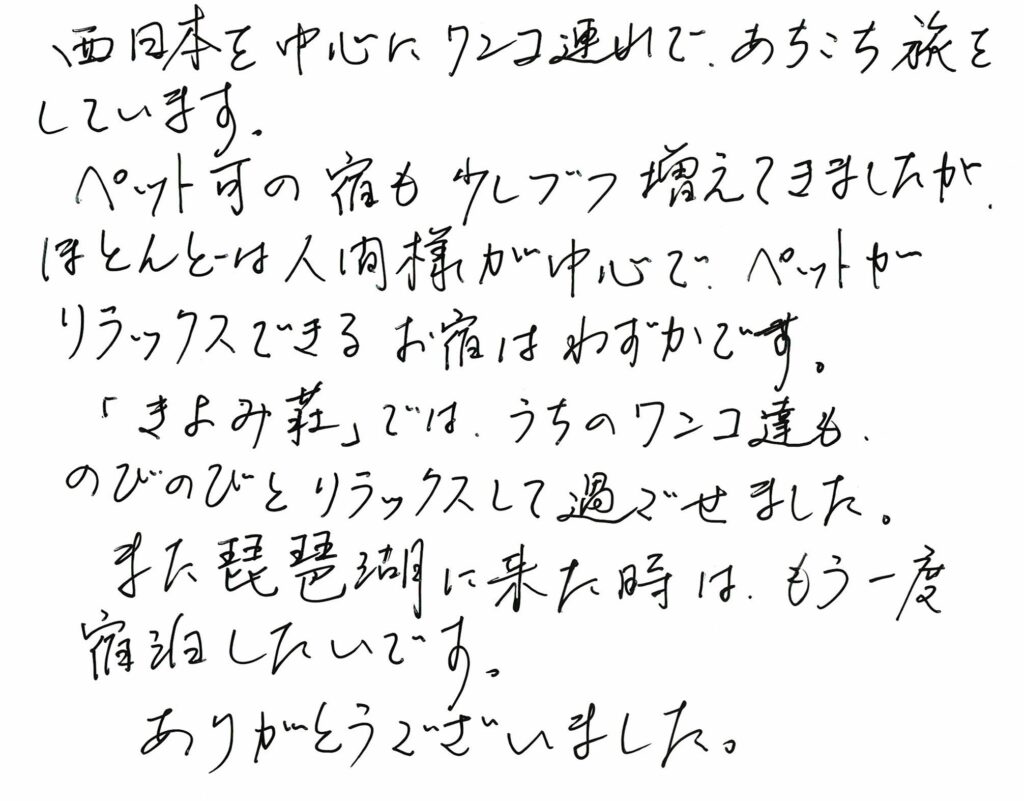 西日本を中心にワンコ連れで、あちこち旅を
しています。
ペット可の宿も少しづつ増えてきましたが、
ほとんどは人間様が中心で、ペットが
リラックスできるお宿はわずかです。
「きよみ荘」では、うちのワンコ達も、
のびのびとリラックスして過ごせました。
また琵琶湖に来た時は、もう一度
宿泊したいです。
ありがとうございました。